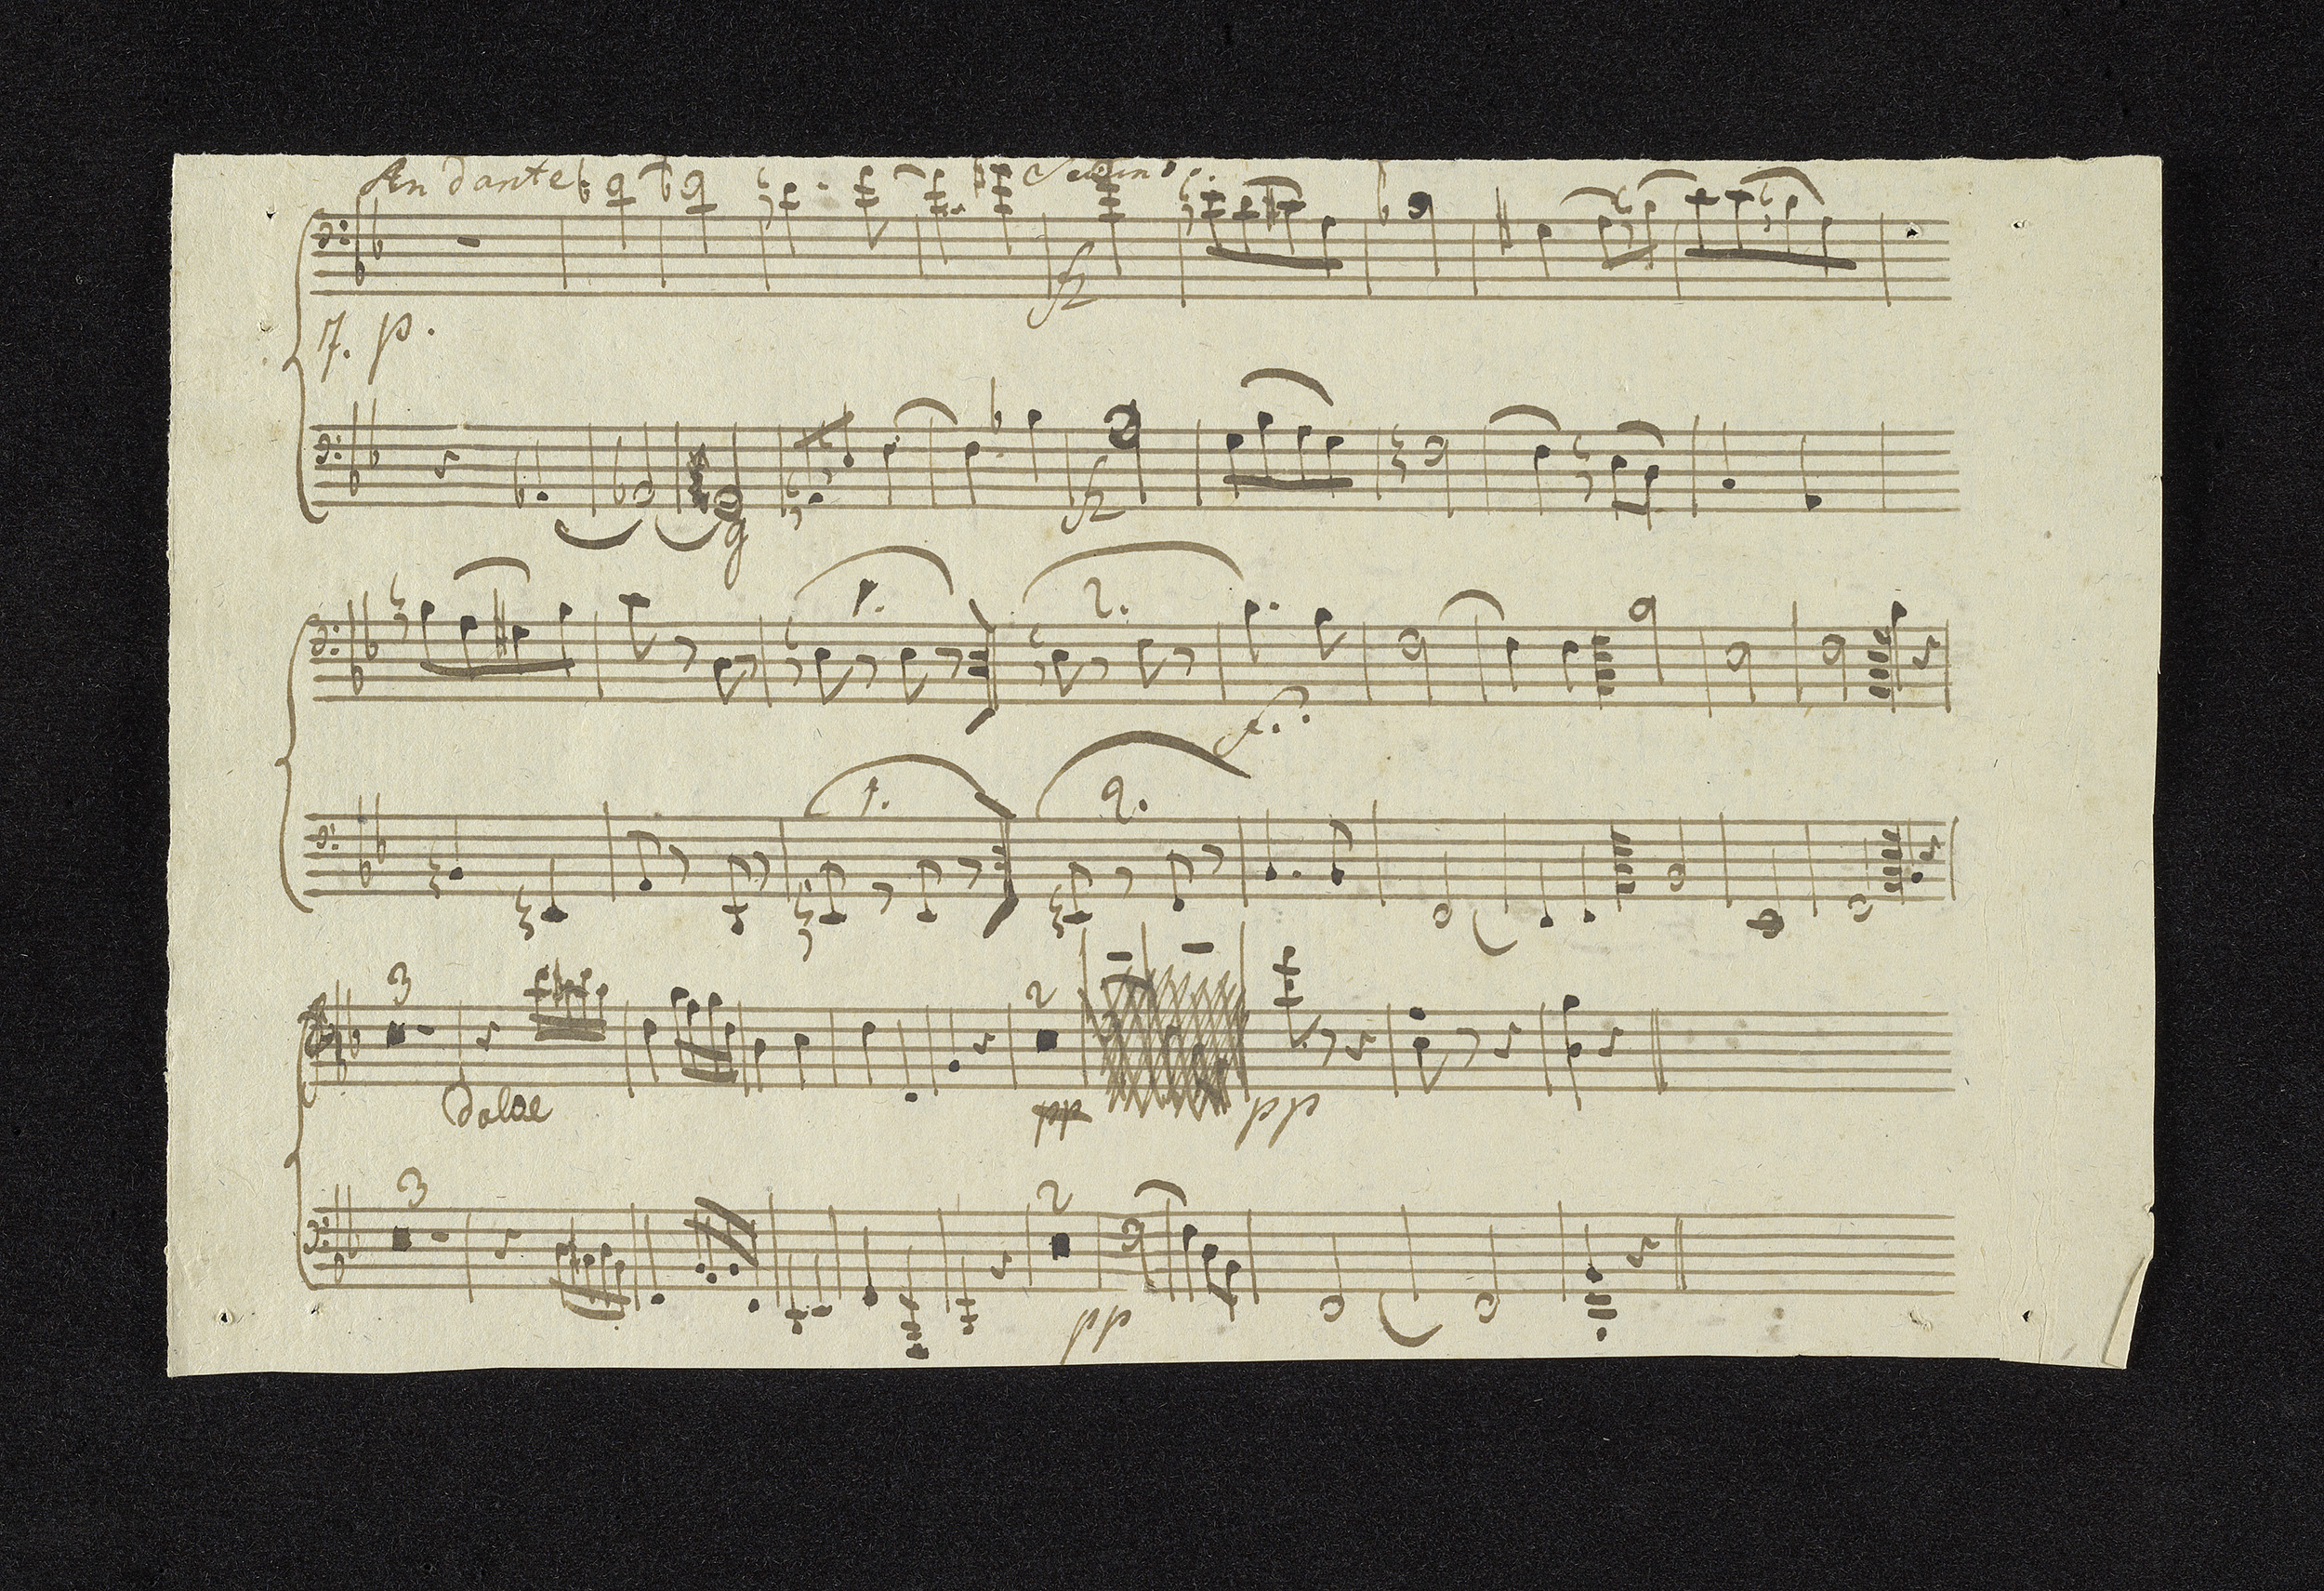 Andante
fz
7. p.
fz
1. 2.
f.
1. 2.
3 2
dolce pp pp
3 2
pp